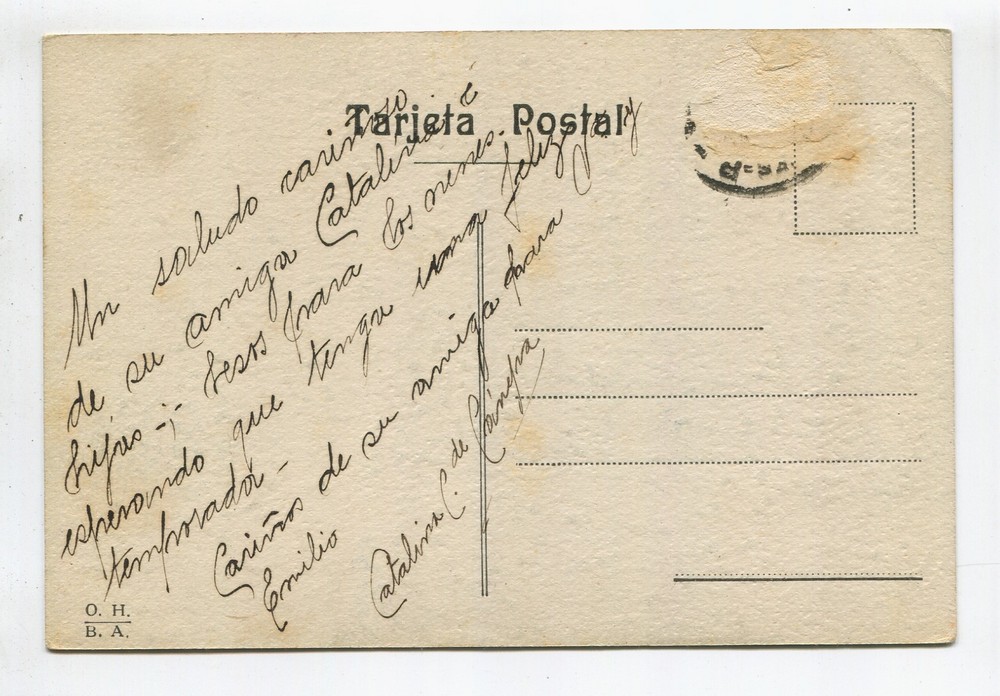 Tarjeta Postal
Un saludo cariñoso
de su amiga Catalina é
hijos -; besos para los nenes.
esperando que tenga una feliz
temporada -
Cariños de su amiga para
Emilio
Catalina C. de Cánepa
O. H.
B. A.